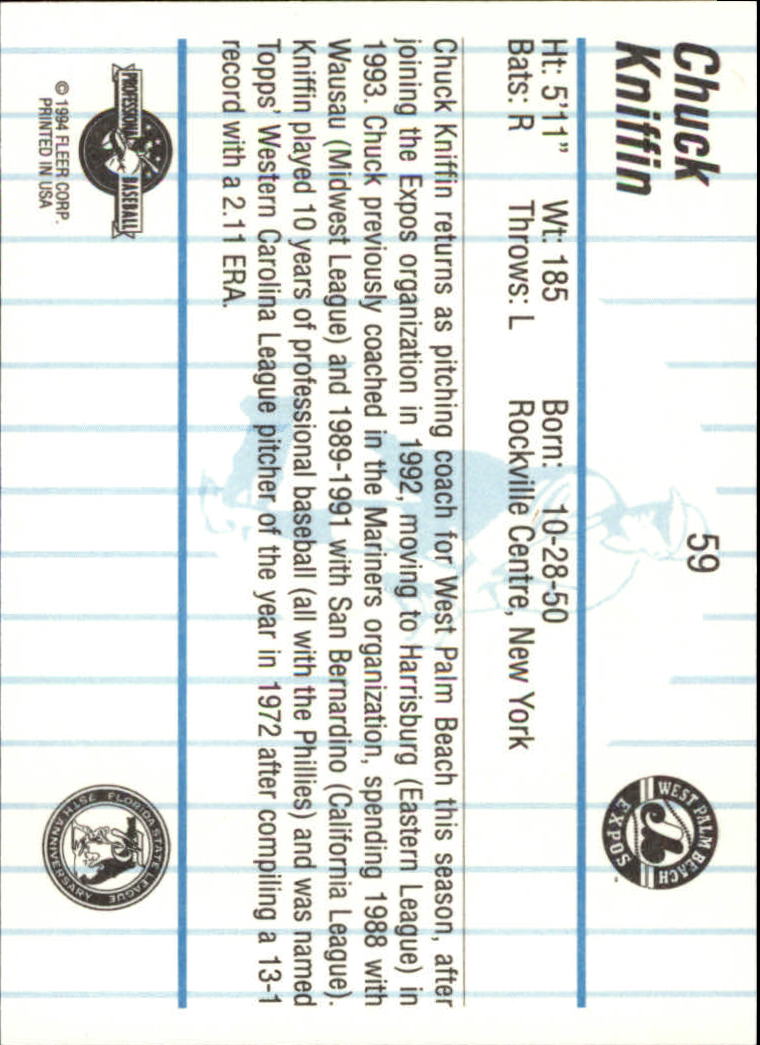 Chuck
Kniffin
59
WEST PALM BEACH
EXPOS
Ht: 5'11" Wt: 185 Born: 10-28-50
Bats: R Throws: L Rockville Centre, New York
Chuck Kniffin returns as pitching coach for West Palm Beach this season, after
joining the Expos organization in 1992, moving to Harrisburg (Eastern League) in
1993. Chuck previously coached in the Mariners organization, spending 1988 with
Wausau (Midwest League) and 1989-1991 with San Bernardino (California League).
Kniffin played 10 years of professional baseball (all with the Phillies) and was named
Topps' Western Carolina League pitcher of the year in 1972 after compiling a 13-1
record with a 2.11 ERA.
PROFESSIONAL BASEBALL
© 1994 FLEER CORP.
PRINTED IN USA
FLORIDA STATE LEAGUE
75TH ANNIVERSARY